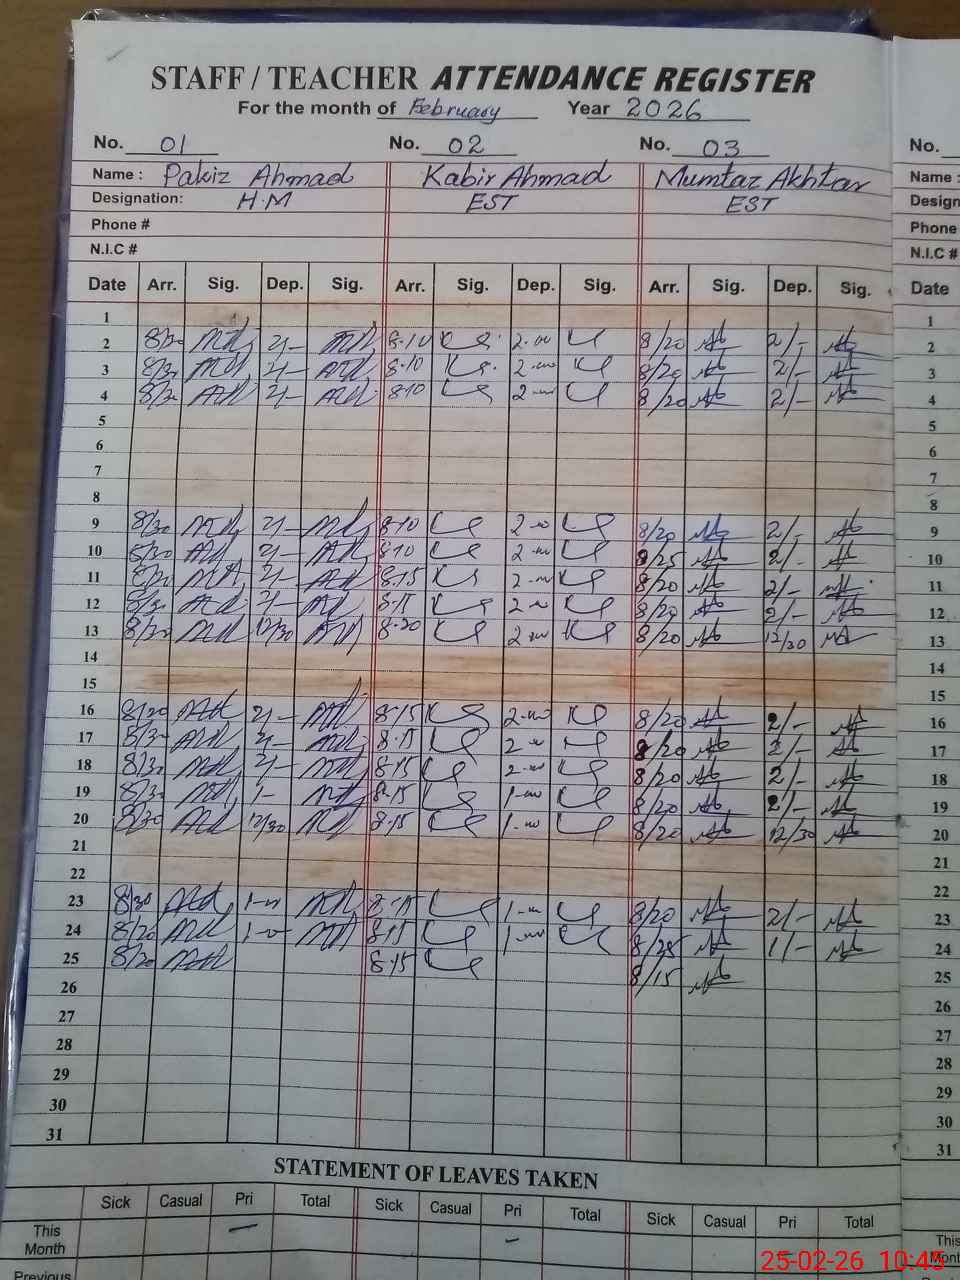 STAFF / TEACHER ATTENDANCE REGISTER
For the month of February Year 2026
No. 01 No. 02 No. 03 No.
Name : Pakiz Ahmad Kabir Ahmad Mumtaz Akhtar Name :
Designation: H.M EST EST Design
Phone # Phone
N.I.C # N.I.C #
Date Arr. Sig. Dep. Sig. Arr. Sig. Dep. Sig. Arr. Sig. Dep. Sig. Date
1 1
2 8/20 2/- 8-10 2-00 8/20 2/- 2
3 8-10 2-00 8/20 2/- 3
4 8-10 2-00 8/20 2/- 4
5 5
6 6
7 7
8 8
9 8/30 2/- 8-10 2-00 8/20 2/- 9
10 8/30 2/- 8-10 2-00 8/25 2/- 10
11 2/- 8-15 2-00 8/20 2/- 11
12 8/30 2/- 8-15 2-00 8/20 2/- 12
13 12/30 8-20 2-00 8/20 12/30 13
14 14
15 15
16 8/20 2/- 8-15 2-00 8/20 2/- 16
17 8/30 2/- 8-15 2-00 8/20 2/- 17
18 8/30 2/- 8-15 2-00 8/20 2/- 18
19 8/30 1- 8-15 1-00 8/20 2/- 19
20 8/30 12/30 8-15 1-00 8/20 12/30 20
21 21
22 22
23 8/30 1-00 8-15 1-00 8/20 2/- 23
24 8/20 1-0 8-15 1-00 8/25 1/- 24
25 8/20 8-15 8/15 25
26 26
27 27
28 28
29 29
30 30
31 31
STATEMENT OF LEAVES TAKEN
Sick Casual Pri Total Sick Casual Pri Total Sick Casual Pri Total
This Month - - This Mon
Previous
25-02-26 10:45